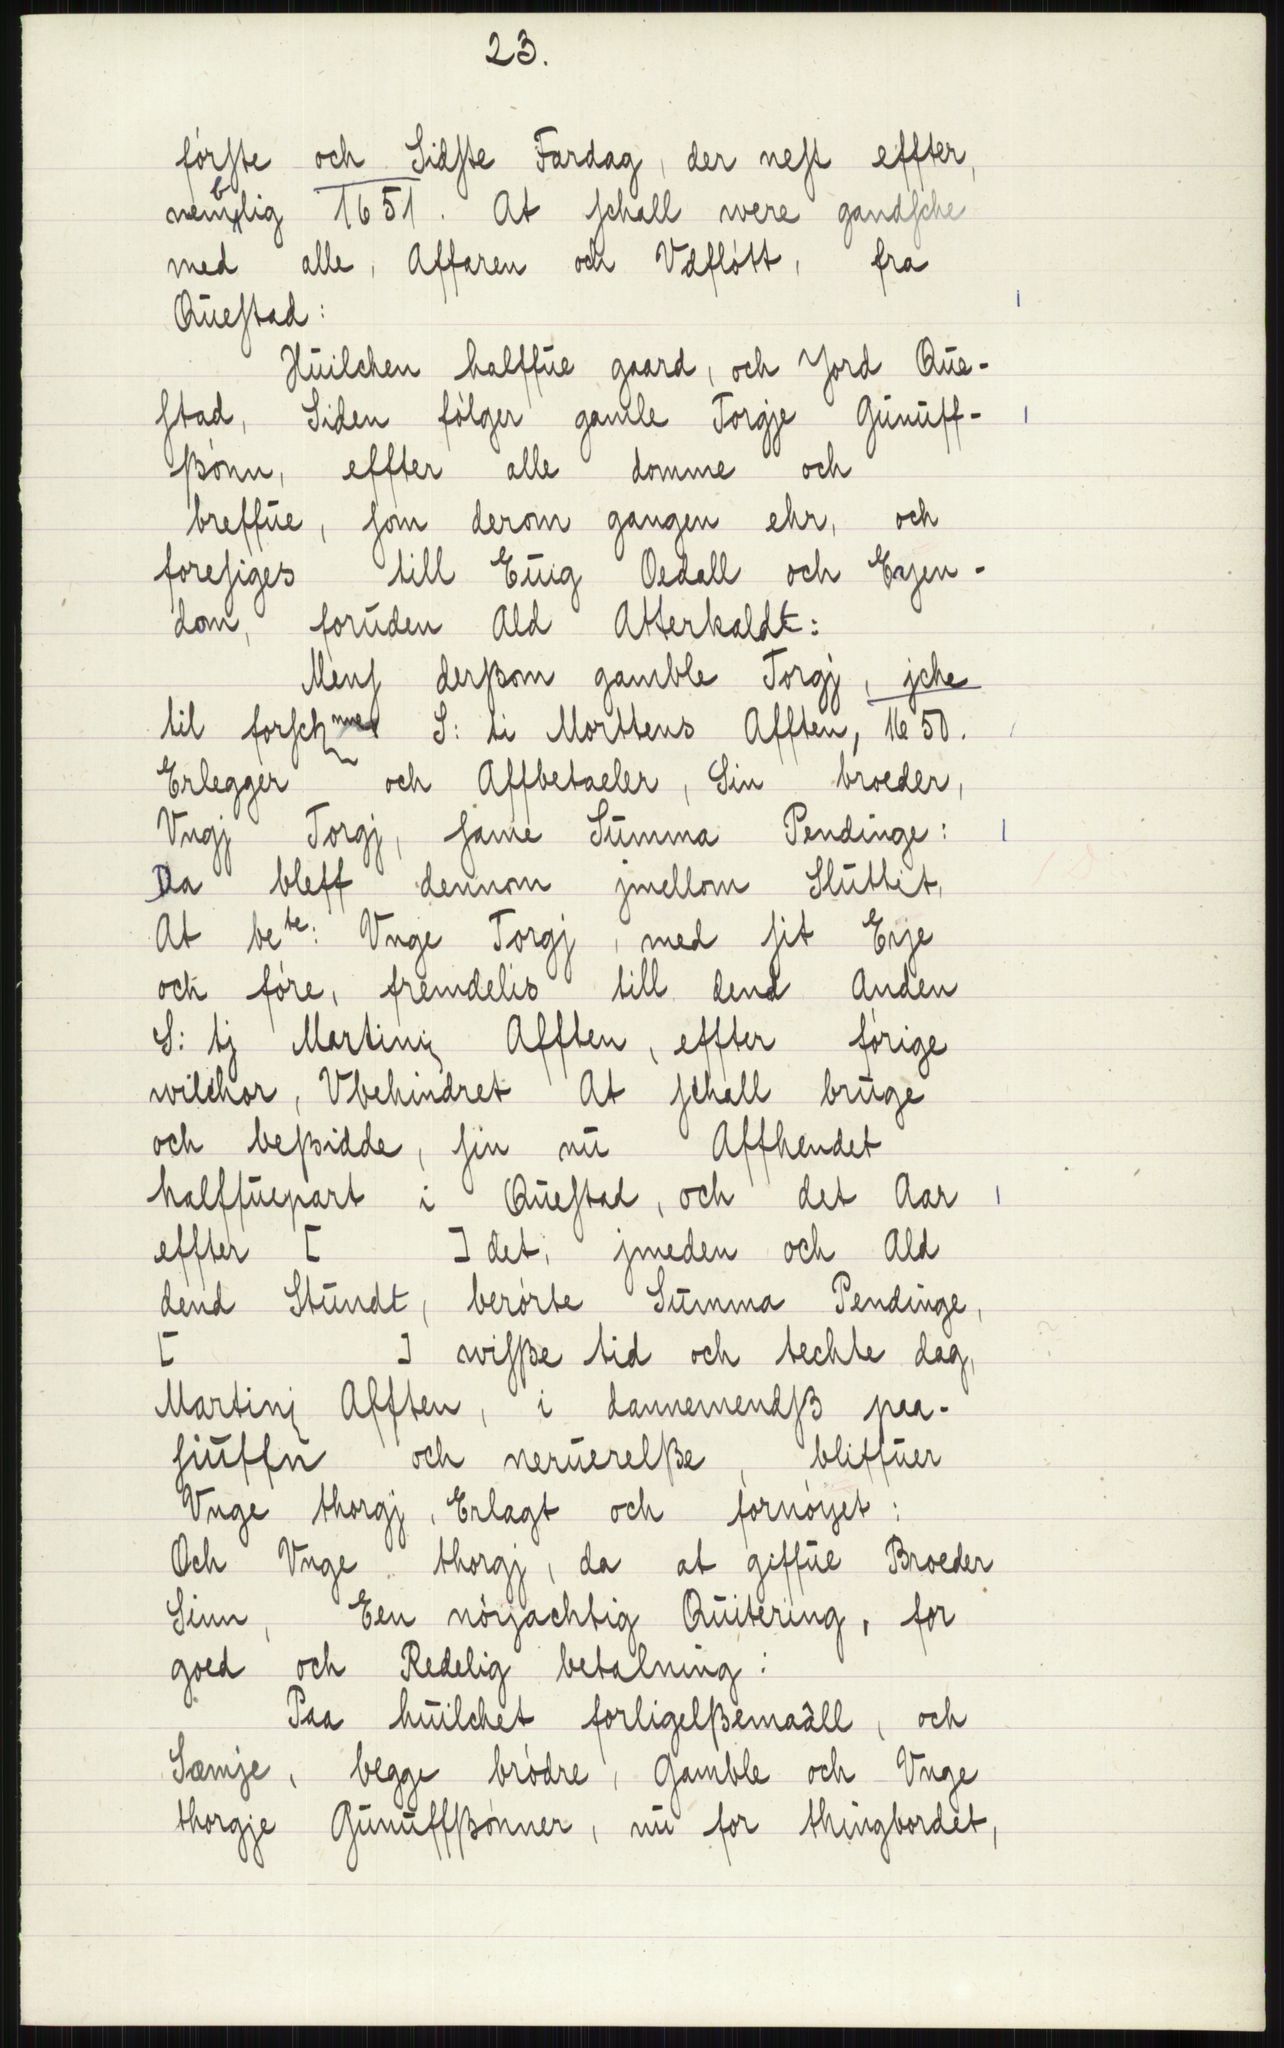 23.
förste och Sidste Fardag, der nest effter,
nemblig 1651. At schall were gandsche
med alle, Affaren och Vdflött, fra
Questad:
Huilchen halffue gaard, och Jord Que-
stad, Siden fölger gamle Torgje Gunuff-
ßönn, effter alle domme och
breffue, som derom gangen ehr, och
foresiges till Euig Oedall och Eyen-
dom, foruden Ald Atterkaldt:
Mens derßom gamble Torgj, jche
til forsch S: ti Morttens Afften, 1650.
Erlegger och Affbetaeler, Sin broeder,
Vngj Torgj, same Summa Pendinge:
Da bleff dennom jmellom Sluttit,
At bete: Vnge Torgj, med sit Eije
och före, fremdelis till dend Anden
S: tj Martinj Afften, effter förige
wilchor, Vbehindret At schall bruge
och beßidde, sin nu Affhendet
halffuepart i Questad, och det Aar
effter [ ] det, jmeden och Ald
dend Stundt, berörte Summa Pendinge,
[ ] wisße tid och techte dag,
Martinj Afften, i dannemendsß paa-
siuffn och neruerelße, bliffuer
Vnge thorgj, Erlagt och fornöyet:
Och Vnge thorgj, da at giffue Broeder
Sinn, Een nöyachtig Quitering, for
goed och Redelig betalning:
Paa huilchet forligelßemaäll, och
Sæmje, begge brödre, Gamble och Vnge
thorgje Gunuffßönner, nu for thingbordet,